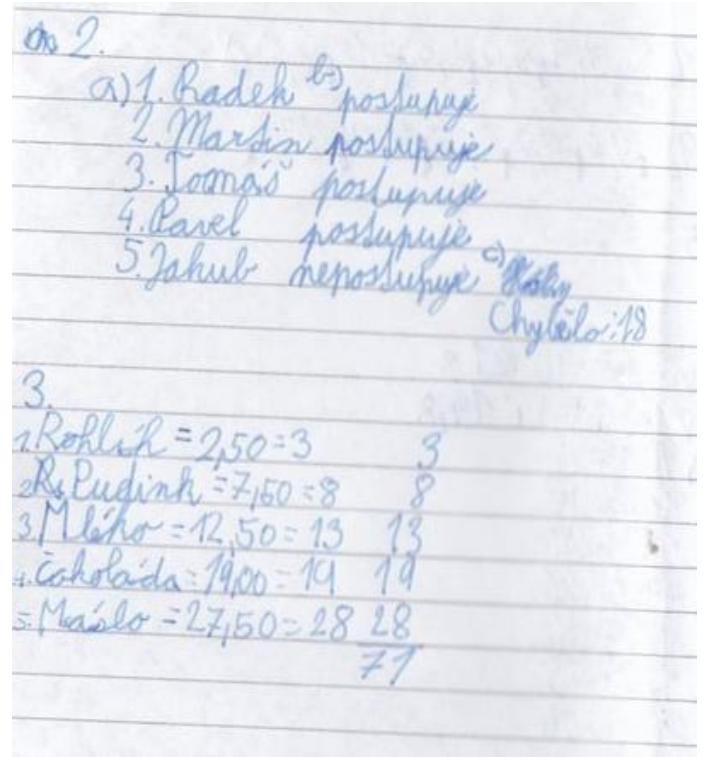 2.
a) 1. Radek b) postupuje
2. Martin postupuje
3. Tomáš postupuje
4. Pavel postupuje
5. Jakub nepostupuje c)
Chybělo: 18
3.
1. Rohlík = 2,50 = 3 3
2. Pudink = 7,50 = 8 8
3. Mléko = 12,50 = 13 13
4. Čokoláda = 19,00 = 19 19
5. Máslo = 27,50 = 28 28
71